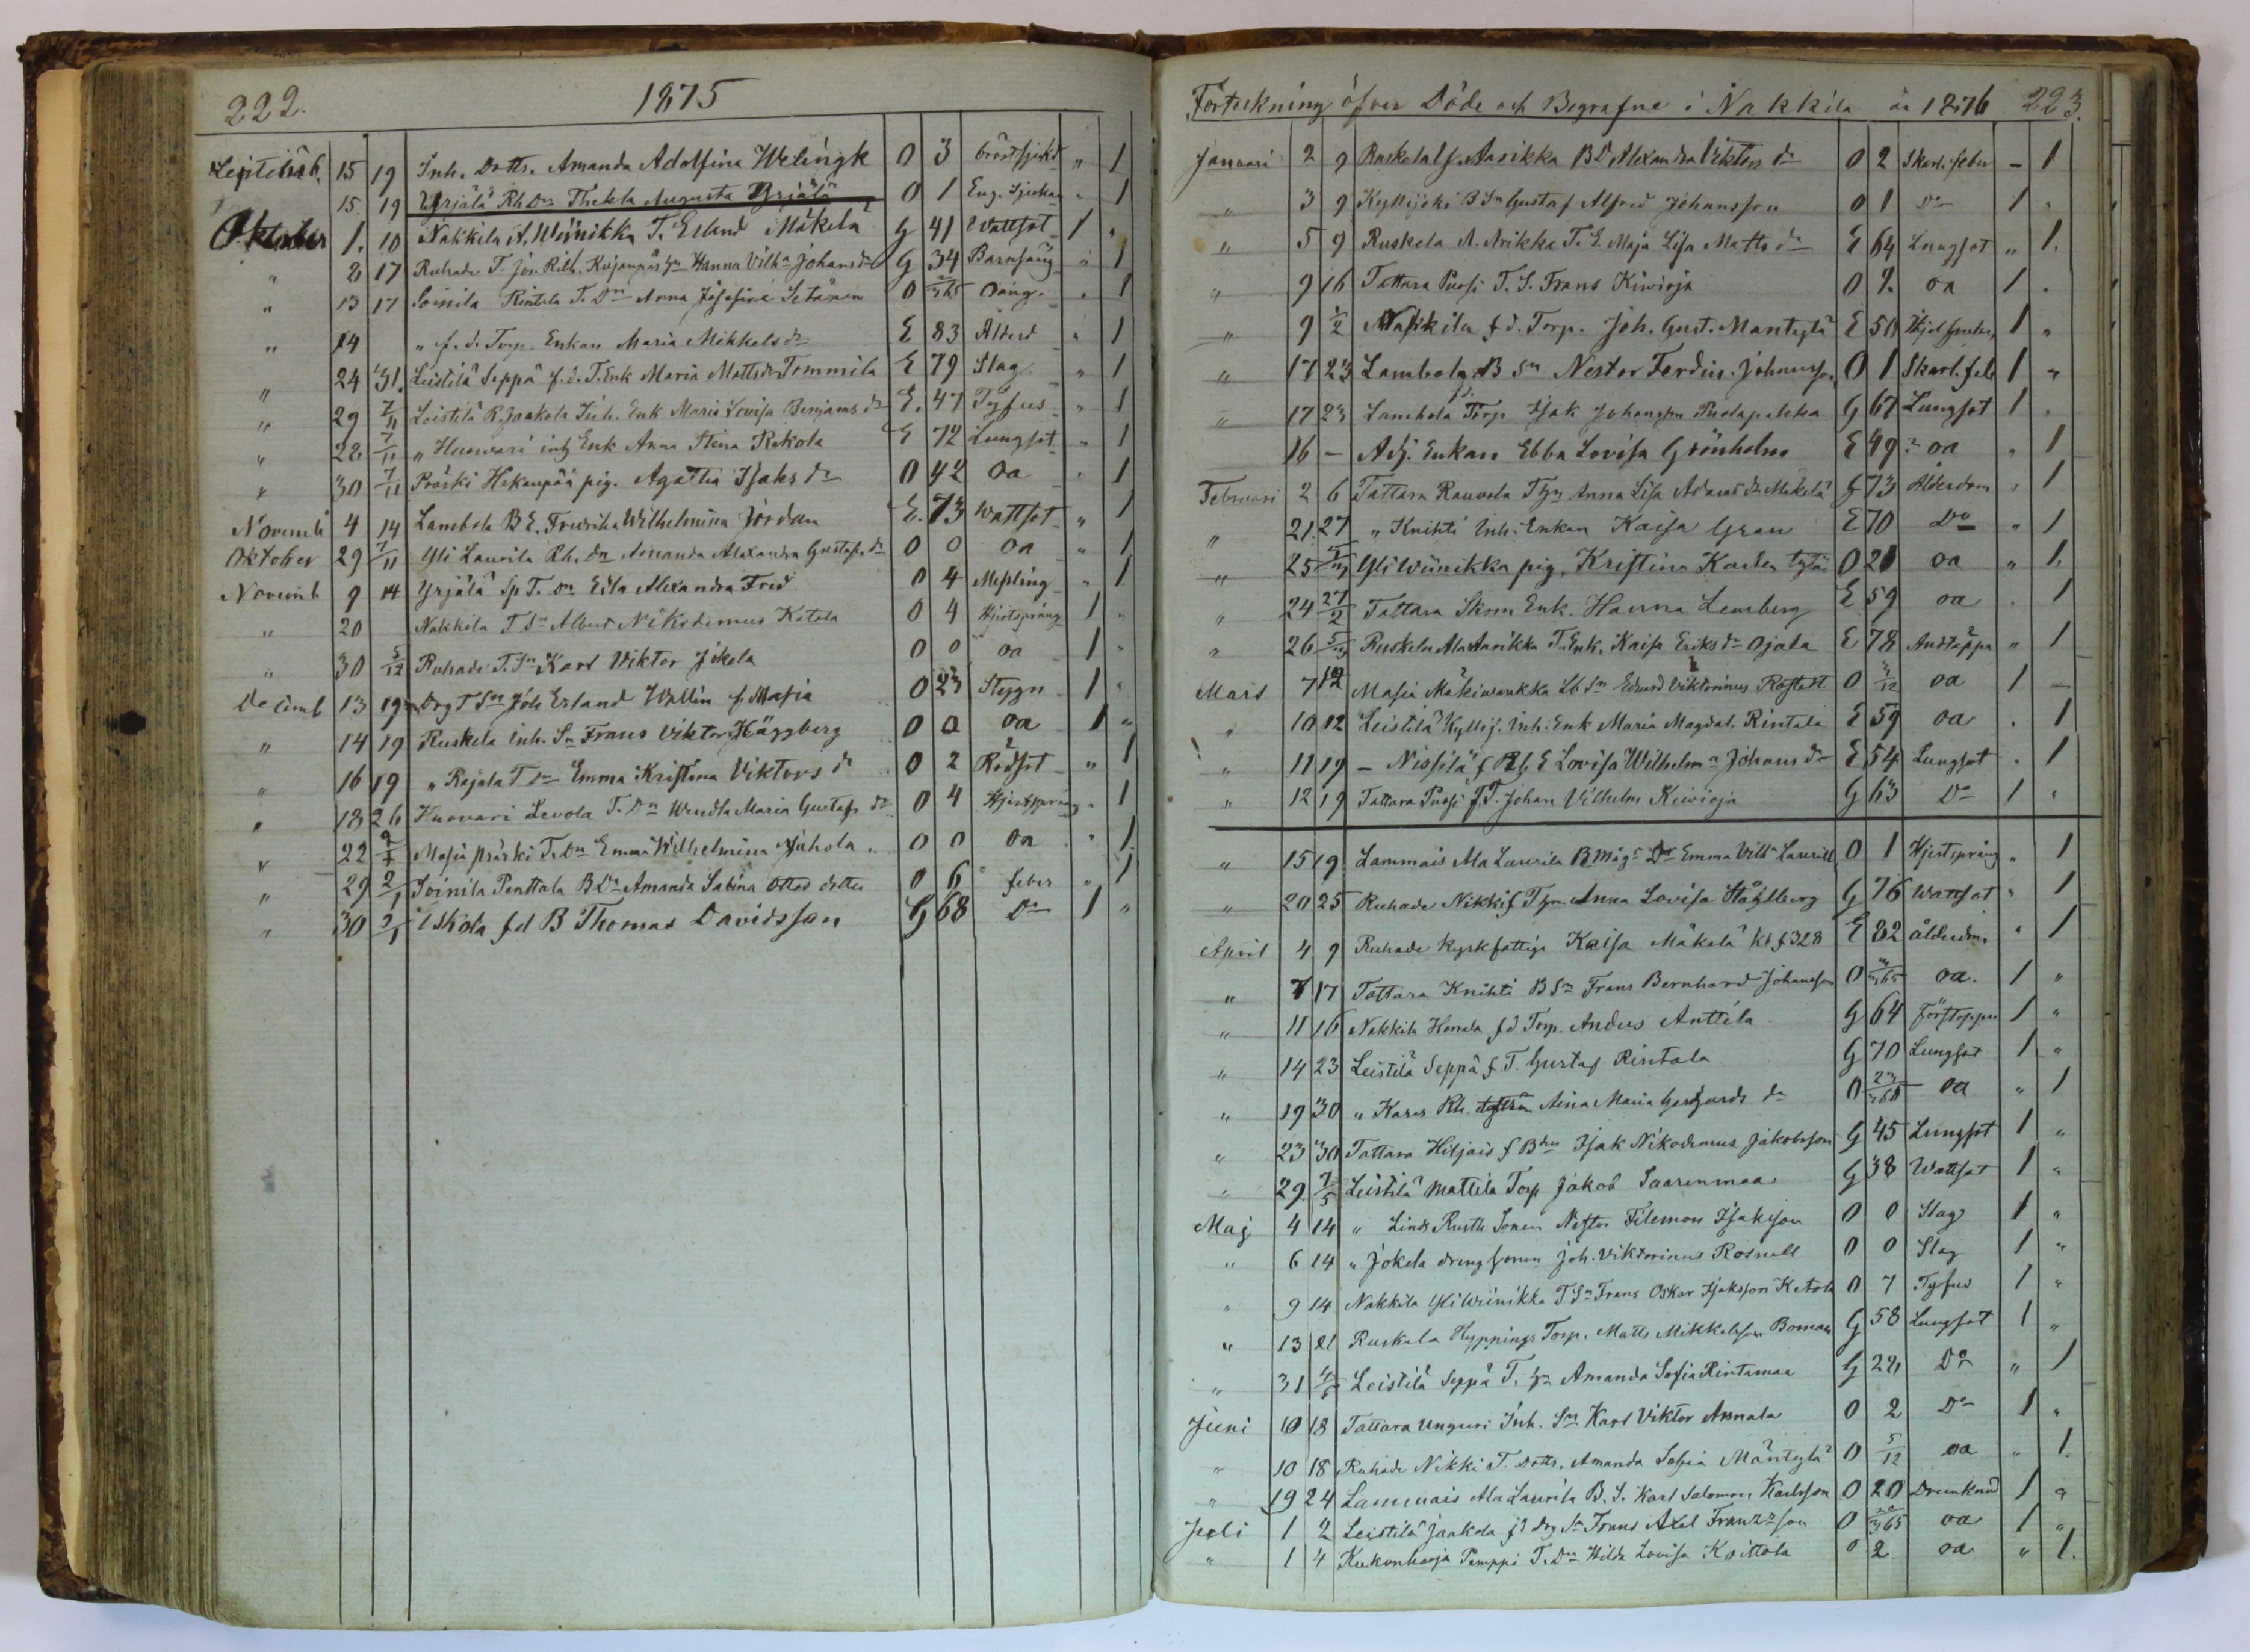 222. 1875
15 19 Inh. Dottr. Amanda Adolfina Welingk O 3 Bröstsjukd „ 1
15 19 Yrjälä Rh Dr Thekla Augusta Yrjälä O 1 Eng. Sjukan „ 1
Oktober 1. 10 Nakkila A. Wiinikka T. Erland Mäkelä G 41 Wattsot 1 „
„ 8 17 Ruhade T. Hanna Vilha Johansdr G 34 Barnsäng „ 1
„ 13 17 Soinila Rintela T. Dr Anna Josefina Setänen O /365 oang. „ 1
„ 14 „ f. d. Torp. Enkan Maria Mikkelsdr E 83 Ålderd „ 1
„ 24 31. Leistilä Seppä f. d. T. Enk Maria Mattsdr Tommila E 79 Slag „ 1
„ 29 7/11 Leistilä R. Jaakola Inh. Enk Maria Lovisa Benjamsdr E. 47 Tyfus „ 1
„ 28 7/11 „ Hunvari Enk Anna Stena Rekola E 72 Lungsot „ 1
„ 30 7/11 Präski Hakanpää pig. Agatha Isaksdr O 42 oa „ 1
Novemb 4 14 Lambola B E. Fredrika Wilhelmina Jordan E. 73 Wattsot „ 1
Oktober 29 7/11 Yli Laurila Rh. dr Amanda Alexandra Gustafsdr O 0 oa „ 1
Novemb 9 14 Yrjälä Sp T. Dr Eila Alexandra Fred O 4 Messling „ 1
„ 20 Nakkila T Sn Albert Nikodemus Ketola O 4 Hjertsprång 1 „
„ 30 5/12 Ruhade T. Sn Karl Viktor Jokela O 0 oa 1 „
Decemb 13 19 Drg T Sn Joh Erland Wallin f. Masia O 23 Stygn 1 „
„ 14 19 Ruskela inh. Sn Frans Viktor Häggberg O 0 oa 1 „
„ 16 19 „ Rajala T Dr Emma Kristina Viktors dr O 2 Rödsot „ 1
„ 18 26 Hunvari Levola T. Dr Wendla Maria Gustafs dr O 4 Hjertsprång „ 1
„ 22 2/1 Masia Präski T. Dr Emma Wilhelmina Ajuhola O 0 oa „ 1
„ 29 2/1 Soinila Penttala B Dr Amanda Sabina Ottos dotter O 6 feber „ 1
„ 30 2/1 Uskola fd B Thomas Davidsson G 68 Do 1 „
Förteckning öfver Döde och Begrafne i Nakkila år 1876 223.
Januari 2 9 Ruskela Arikka B Dr Alexandra Viktors dr O 2 Skarl. feber – 1
„ 3 9 Kyllijoki B Sn Gustaf Alfred Johansson O 1 Do 1 „
„ 5 9 Ruskela A. Arikka T. E. Maja Lisa Matts dr E 64 Lungsot „ 1.
„ 9 16 Tattara Puosi T. S. Frans Kiwioja O oa 1 „
„ 9 1/2 Nakkila f d. Torp. Joh. Gust. Mäntylä E 50 1 „
„ 17 23 Lambola B Sn Nestor Ferdin. Johansso. O 1 Skarl. feb 1 „
„ 17 23 Lambola Torp Isak Johansson Pudapakka G 67 Lungsot 1 „
16 – Adj. Enkan Ebba Lovisa Grönholm E 49 oa „ 1
Februari 2 6 Tattara Rauvola Anna Lisa Mäkelä G 73 Ålderdom „ 1
„ 21. 27 „ Knihti Inh: Enkan Kaisa Gran E 70 Do „ 1
„ 25 Yli Wiinikka pig. Kristina Karlen O 21 oa „ 1.
„ 24 27/2 Tattara Skom Enk. Hanna Lemberg E 59 oa „ 1
„ 26 5/3 Ruskela Ala Aarikka T. Enk. Kaisa Eriksdr Ojala E 78 Andtäppa „ 1
Mars 7 12 Masia Mäkiwaukka Sn Edvard Viktorinus O /12 oa 1 –
„ 10 12 Leistilä Kyllij. Inh. Enk Maria Magdal. Rintala E 59 oa „ 1
„ 11 19 – Nissilä f Rh E Lovisa Wilhelma Johans dr E 54 Lungsot „ 1
„ 12 19 Tattara Puosi f. T. Johan Vilhelm Kiwioja G 63 Do 1 „
„ 15 19 Lammais Ala Laurila B Mågs Dr Emma Vilha Laurill O 1 Hjertsprång „ 1
„ 20 25 Ruhade Nikki f Anna Lovisa Ståhlberg G 76 Wattsot „ 1
April 4 9 Ruhade kyrkfattiga Kaisa Mäkelä Kb f 328 E 82 ålderdm. „ 1
„ 7 17 Tattara Knihti B Sn Frans Bernhard Johansson O /365 oa. 1 „
„ 11 16 Nakkila Hornala f d Torp. Anders Anttila G 64 Förstoppn 1 „
„ 14 23 Leistilä Seppä f. T. Gustaf Rintala G 70 Lungsot 1 „
„ 19 30 „ Kares Rh. Aina Maria dr O 23/365 oa „ 1
„ 23 30 Tattara Hiljais f Isak Nikodemus Jakobsson G 45 Lungsot 1 „
„ 29. 7/5 Leistilä Mattila Torp Jakob Saarenmaa G 38 Wattsot 1 „
Maj 4 14 „ Linds Rusth Sonen Nestor Filemon Isaksson O 0 Slag 1 „
„ 6 14 „ Jokela drengsonen Joh. Viktorinus Rosnell O 0 Slag 1 „
„ 9 14 Nakkila Yli Wiinikka T Sn Frans Oskar Isaksson Ketola O 7 Tyfus 1 „
„ 13 21 Ruskela Hyppings Torp. Matts Mikkelsson Boman G 58 Lungsot 1 „
„ 31 4/6 Leistilä Seppä T. hn Amanda Sofia Rintamaa G 28 Do „ 1
Juni 10 18 Tattara Unguri Inh. Sn Karl Viktor Annala O 2 Do 1 „
„ 10 18 Ruhade Nikki T. Dottr. Amanda Sofia Mäntylä O 5/12 oa „ 1.
„ 19 24 Lammais Ala Laurila B. S. Karl Salomon Karlsson O 20 Drunknad 1 „
Juli 1 2 Leistilä Jaakola fd Drg Sn Frans Axel Franzsson O /365 oa 1 „
„ 1 4 Kukonharja Pamppi T. Dr Hilda Lovisa Koittola O 2 oa „ 1.